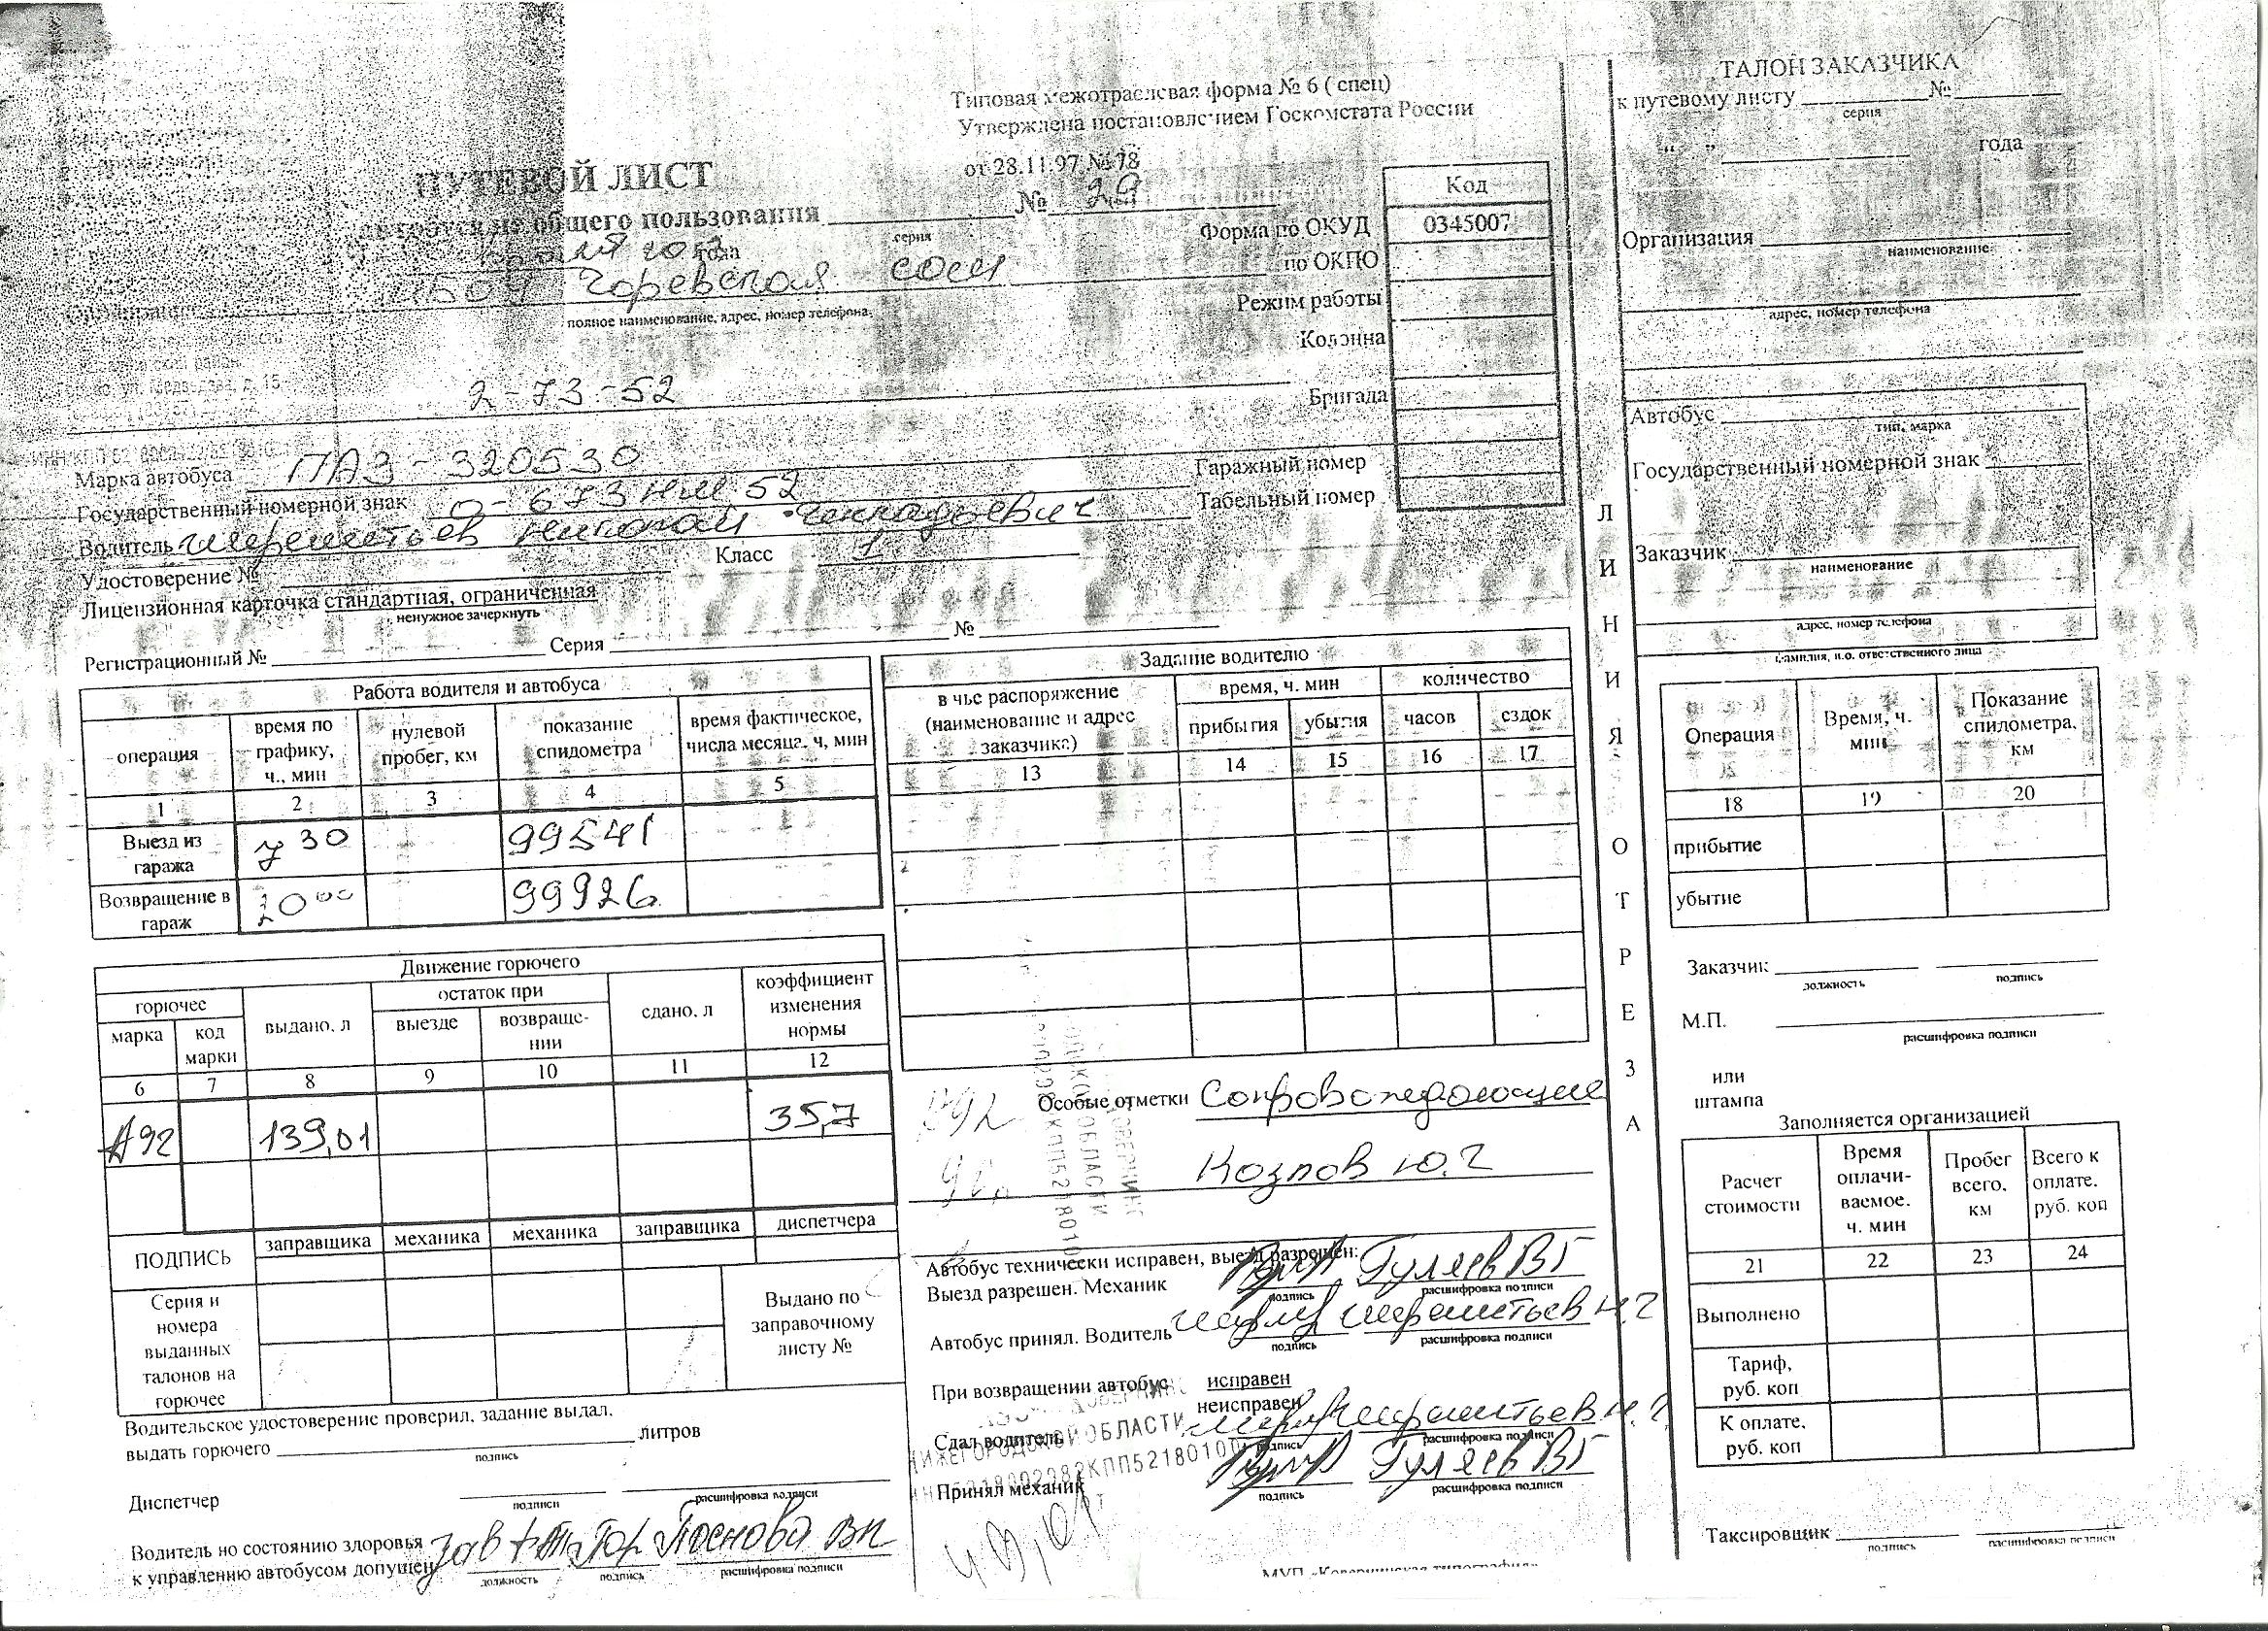 Типовая межотраслевая форма № 6 ( спец)
Утверждена постановлением Госкомстата России
от 28.11.97 № 78
ПУТЕВОЙ ЛИСТ
№ 29
не общего пользования
серия
года
Горевская
полное наименование, адрес, номер телефона
д. 15
2-73-52
Код
Форма по ОКУД 0345007
по ОКПО
Режим работы
Колонна
Бригада
Гаражный номер
Табельный номер
Марка автобуса ПАЗ-320530
Государственный номерной знак О-673 НМ 52
Водитель Шереметьев Николай Геннадьевич
Удостоверение № Класс 1
Лицензионная карточка стандартная, ограниченная
ненужное зачеркнуть
Регистрационный № Серия №
Работа водителя и автобуса
операция время по графику, ч., мин нулевой пробег, км показание спидометра время фактическое, числа месяца, ч, мин
1 2 3 4 5
Выезд из гаража 7 30 99541
Возвращение в гараж 20 00 99926
Задание водителю
в чье распоряжение (наименование и адрес заказчика) время, ч. мин количество
прибытия убытия часов ездок
13 14 15 16 17
Движение горючего
горючее выдано, л остаток при сдано, л коэффициент изменения нормы
марка код марки выезде возвращении
6 7 8 9 10 11 12
А92 139,01 35,7
ПОДПИСЬ заправщика механика механика заправщика диспетчера
Серия и номера выданных талонов на горючее
Выдано по заправочному листу №
Водительское удостоверение проверил, задание выдал,
выдать горючего литров
подпись
Диспетчер
подписи расшифровка подписи
Водитель по состоянию здоровья
к управлению автобусом допущен зав Поснова ВН
должность подпись расшифровка подписи
Особые отметки Сопровождающие
Козлов Ю.Г
Автобус технически исправен, выезд разрешен:
Выезд разрешен. Механик Гуляев ВГ
подпись расшифровка подписи
Автобус принял. Водитель Шереметьев Н.Г
подпись расшифровка подписи
При возвращении автобус исправен
неисправен
Сдал водитель Шереметьев Н.Г
подпись расшифровка подписи
НИЖЕГОРОДСКОЙ ОБЛАСТИ
Принял механик Гуляев ВГ
подпись расшифровка подписи
ЛИНИЯ ОТРЕЗА
ТАЛОН ЗАКАЗЧИКА
к путевому листу №
серия
“ ” года
Организация
наименование
адрес, номер телефона
Автобус
тип, марка
Государственный номерной знак
Заказчик
наименование
адрес, номер телефона
фамилия, и.о. ответственного лица
Операция Время, ч. мин Показание спидометра, км
18 19 20
прибытие
убытие
Заказчик
должность подпись
М.П.
расшифровка подписи
или
штампа
Заполняется организацией
Расчет стоимости Время оплачиваемое, ч. мин Пробег всего, км Всего к оплате, руб. коп
21 22 23 24
Выполнено
Тариф, руб. коп
К оплате, руб. коп
Таксировщик
подпись расшифровка подписи